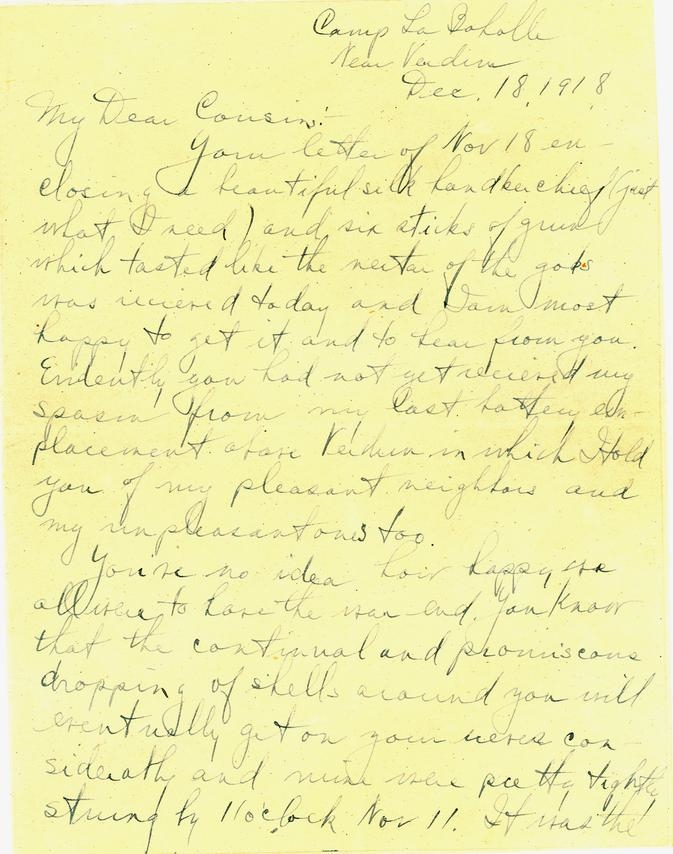 Camp La Baholle
Near Verdun
Dec. 18, 1918
My Dear Cousin:-
Your letter of Nov 18 en-
closing a beautiful silk handkerchief (just
what I need) and six sticks of gum
which tasted like the nectar of the gods
was recieved today and I am most
happy to get it and to hear from you.
Evidently you had not yet recieved my
spasm from my last battery em-
placement above Verdun in which I told
you of my pleasant neighbors and
my unpleasant ones too.
You've no idea how happy we
all were to have the war end. You know
that the continual and promiscous
dropping of shells around you will
eventually get on your nerves con-
siderably and mine were pretty tightly
strung by 11 o'clock Nov 11. It was the